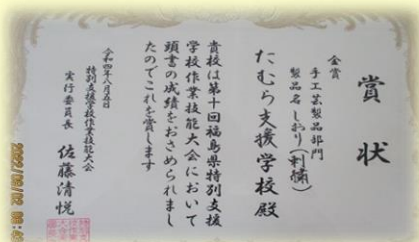 賞状
金賞
手工芸製品部門
製品名 しおり(刺繍)
たむら支援学校殿
貴校は第十回福島県特別支援
学校作業技能大会において
頭書の成績をおさめられまし
たのでこれを賞します
令和四年八月五日
特別支援学校作業技能大会
実行委員長 佐藤清悦